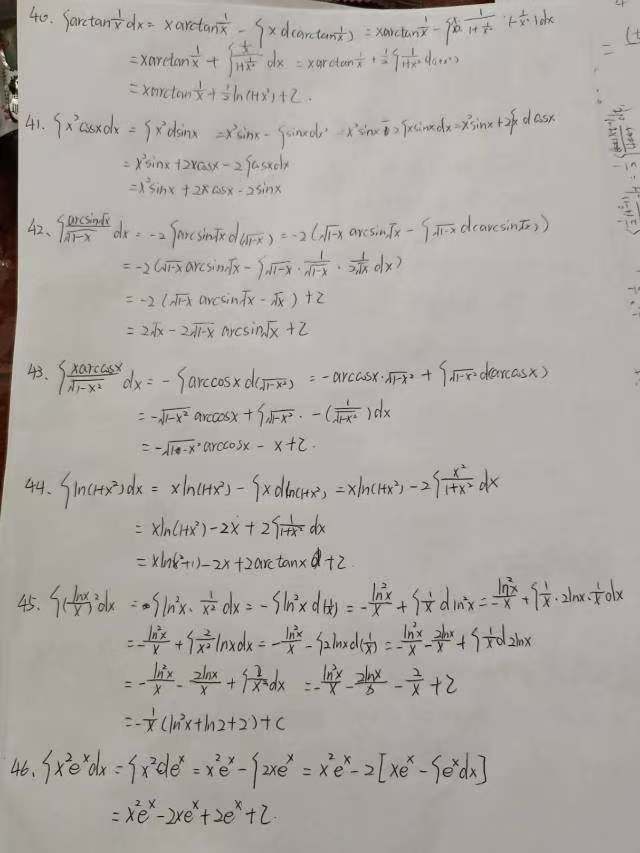 40. ∫arctan 1/x dx = x arctan 1/x - ∫x d(arctan 1/x) = x arctan 1/x - ∫x · 1/(1+1/x²) · (-1/x²)dx
= x arctan 1/x + ∫(1/x)/(1+1/x²) dx = x arctan 1/x + 1/2∫1/(1+x²) d(1+x²)
= x arctan 1/x + 1/2 ln(1+x²) + C.
41. ∫x²cosx dx = ∫x² dsinx = x²sinx - ∫sinx dx² = x²sinx - 2∫x sinx dx = x²sinx + 2∫x dcosx
= x²sinx + 2xcosx - 2∫cosx dx
= x²sinx + 2xcosx - 2sinx
42. ∫arcsin√x/√(1-x) dx = -2∫arcsin√x d(√(1-x)) = -2(√(1-x) arcsin√x - ∫√(1-x) d(arcsin√x))
= -2(√(1-x) arcsin√x - ∫√(1-x) · 1/√(1-x) · 1/(2√x) dx)
= -2(√(1-x) arcsin√x - √x) + C
= 2√x - 2√(1-x) arcsin√x + C
43. ∫x arccosx/√(1-x²) dx = -∫arccosx d(√(1-x²)) = -arccosx·√(1-x²) + ∫√(1-x²) d(arccosx)
= -√(1-x²) arccosx + ∫√(1-x²) · -(1/√(1-x²))dx
= -√(1-x²) arccosx - x + C.
44. ∫ln(1+x²)dx = xln(1+x²) - ∫x dln(1+x²) = xln(1+x²) - 2∫x²/(1+x²) dx
= xln(1+x²) - 2x + 2∫1/(1+x²) dx
= xln(x²+1) - 2x + 2arctanx + C.
45. ∫(lnx/x)²dx = ∫ln²x · 1/x² dx = -∫ln²x d(1/x) = -ln²x/x + ∫1/x dln²x = -ln²x/x + ∫1/x · 2lnx · 1/x dx
= -ln²x/x + ∫2/x² lnx dx = -ln²x/x - ∫2lnx d(1/x) = -ln²x/x - 2lnx/x + ∫1/x d2lnx
= -ln²x/x - 2lnx/x + ∫2/x² dx = -ln²x/x - 2lnx/x - 2/x + C
= -1/x (ln²x + ln2 + 2) + C
46. ∫x²eˣdx = ∫x²deˣ = x²eˣ - ∫2xeˣ = x²eˣ - 2[xeˣ - ∫eˣdx]
= x²eˣ - 2xeˣ + 2eˣ + C.